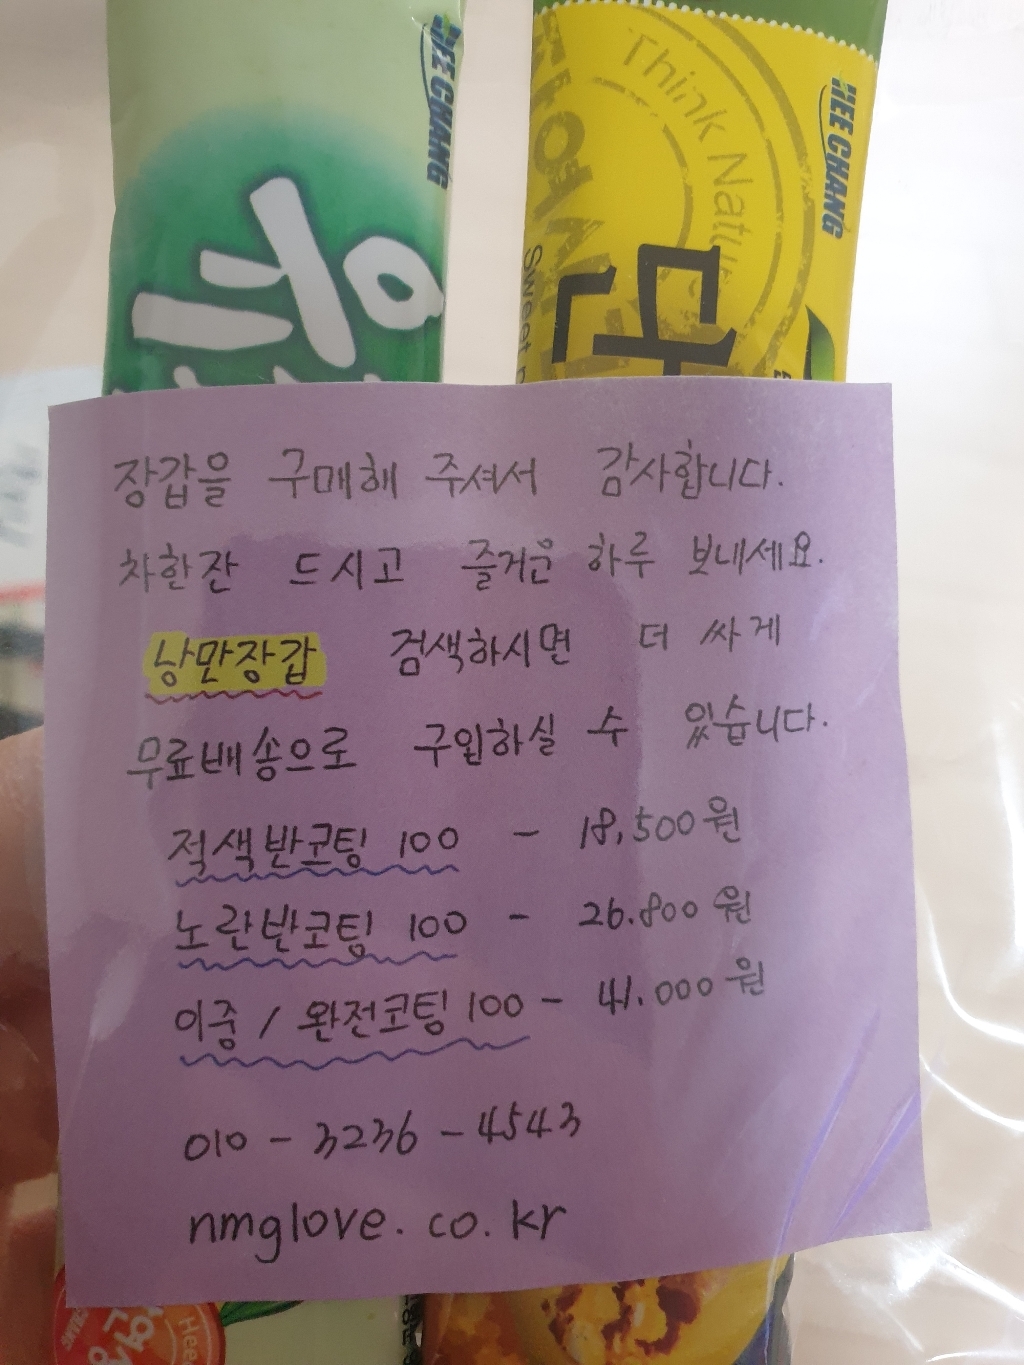 HEE CHANG
HEE CHANG
Think Nature
Sweet
장갑을 구매해 주셔서 감사합니다.
차한잔 드시고 즐거운 하루 보내세요.
낭만장갑 검색하시면 더 싸게
무료배송으로 구입하실 수 있습니다.
적색반코팅 100 - 18,500원
노란반코팅 100 - 26.800원
이중 / 완전코팅 100 - 41.000원
010 - 3236 - 4543
nmglove.co.kr